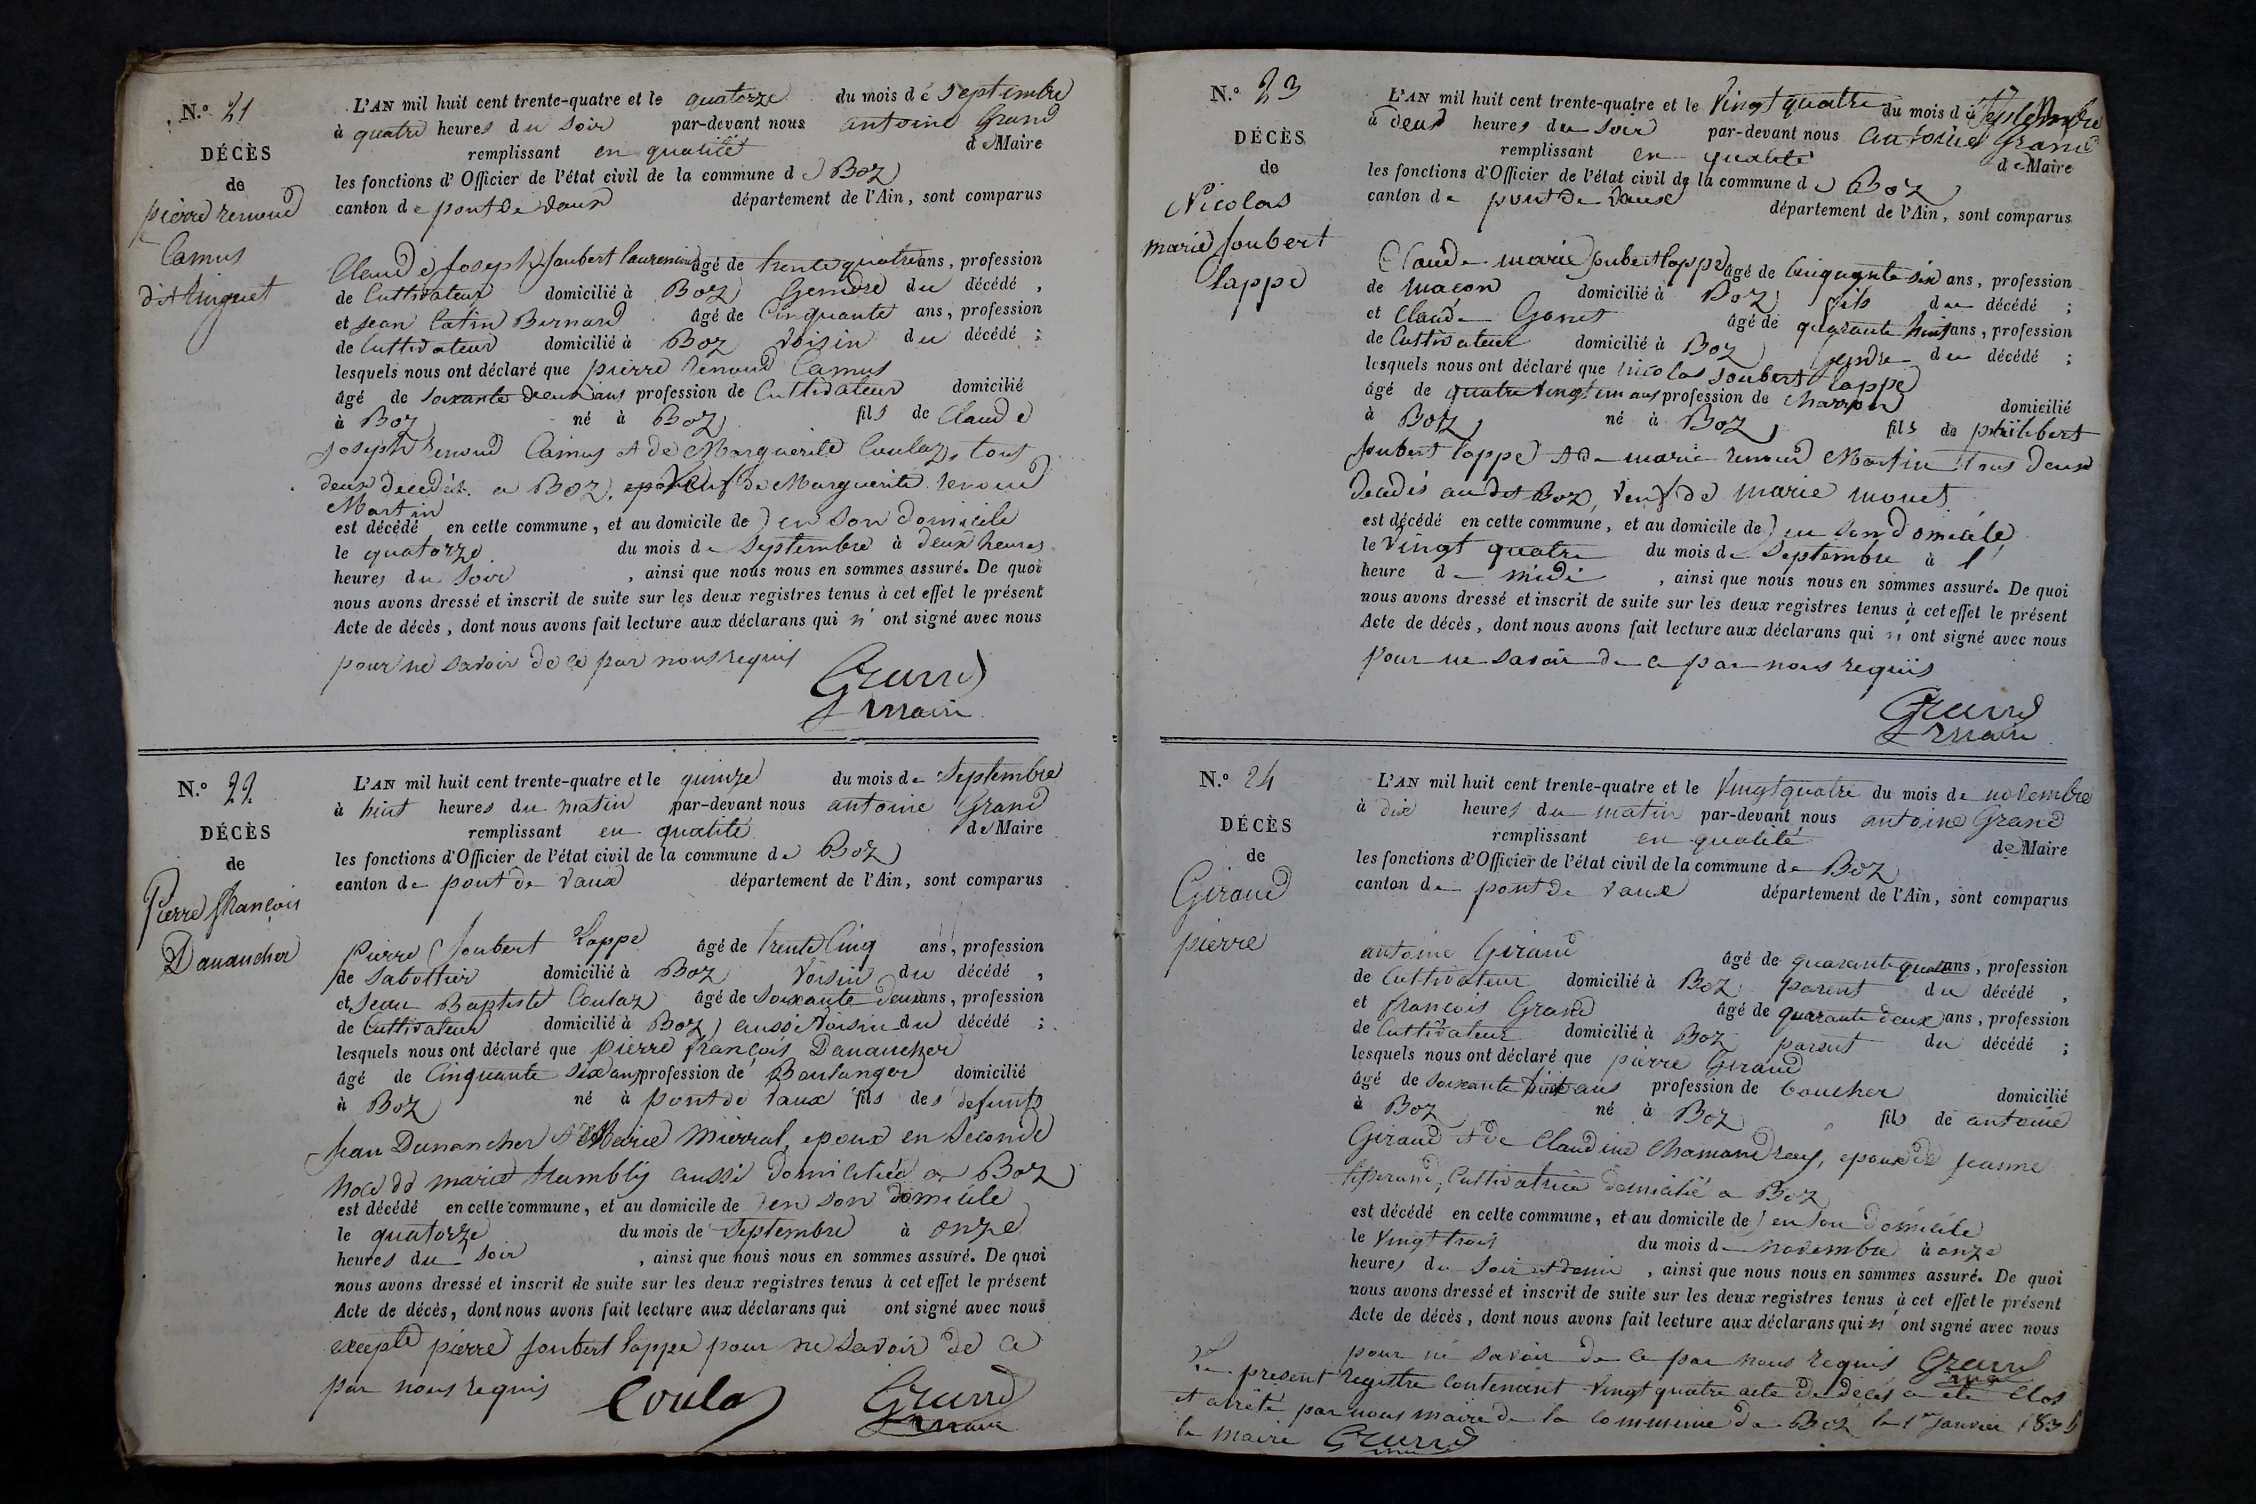 N.º 21
DÉCÈS
de
pierre renoud
Camus
dit
L'AN mil huit cent trente-quatre et le quatorze du mois de septembre
à quatre heures du soir par-devant nous antoine Grand
remplissant en qualité de Maire
les fonctions d'Officier de l'état civil de la commune de Boz
canton de pont de vaux département de l'Ain, sont comparus
Claude Joseph Joubert laurencin âgé de trente quatre ans, profession
de Cultivateur domicilié à Boz Gendre du décédé,
et jean Catin Bernard âgé de Cinquante ans, profession
de Cultivateur domicilié à Boz Voisin du décédé ;
lesquels nous ont déclaré que pierre renoud Camus
âgé de soixante deux ans profession de Cultivateur domicilié
à Boz né à Boz fils de Claude
joseph renoud Camus et de Marguerite Coulaz, tous
deux decedés a Boz, Veuf de Marguerite renoud
Martin
est décédé en cette commune, et au domicile de en son domicile
le quatorze du mois de septembre à deux heures
heures du soir , ainsi que nous nous en sommes assuré. De quoi
nous avons dressé et inscrit de suite sur les deux registres tenus à cet effet le présent
Acte de décès, dont nous avons fait lecture aux déclarans qui n' ont signé avec nous
pour ne savoir de ce par nous requis
Grand
maire
N.º 22
DÉCÈS
de
Pierre françois
Danancher
L'AN mil huit cent trente-quatre et le quinze du mois de septembre
à huit heures du matin par-devant nous antoine Grand
remplissant en qualité de Maire
les fonctions d'Officier de l'état civil de la commune de Boz
canton de pont de vaux département de l'Ain, sont comparus
pierre Joubert Lappe âgé de trente Cinq ans, profession
de sabottier domicilié à Boz Voisin du décédé,
et jean Baptiste Coulaz âgé de soixante deux ans, profession
de Cultivateur domicilié à Boz aussi Voisin du décédé ;
lesquels nous ont déclaré que pierre françois Danancher
âgé de Cinquante six ans profession de Boulanger domicilié
à Boz né à pont de vaux fils des defunts
Jean Danancher et Marie Mierral, epoux en seconde
Noce de marie aussi domiciliée a Boz
est décédé en cette commune, et au domicile de en son domicile
le quatorze du mois de septembre à onze
heures du soir , ainsi que nous nous en sommes assuré. De quoi
nous avons dressé et inscrit de suite sur les deux registres tenus à cet effet le présent
Acte de décès, dont nous avons fait lecture aux déclarans qui ont signé avec nous
excepté pierre Joubert lappe pour ne savoir de ce
par nous requis Coulas Grand
maire
N.º 23
DÉCÈS
de
Nicolas
marie Joubert
lappe
L'AN mil huit cent trente-quatre et le Vingt quatre du mois de septembre
à deux heures du soir par-devant nous antoine Grand
remplissant en qualité de Maire
les fonctions d'Officier de l'état civil de la commune de Boz
canton de pont de Vaux département de l'Ain, sont comparus
Claude marie Joubert lappe âgé de Cinquante six ans, profession
de maçon domicilié à Boz fils du décédé ;
et Claude Gonet âgé de quarante huit ans, profession
de Cultivateur domicilié à Boz gendre du décédé ;
lesquels nous ont déclaré que nicolas Joubert lappe
âgé de quatre Vingt un ans profession de charron domicilié
à Boz né à Boz fils de philibert
Joubert lappe et de marie renoud Martin Tous deux
decedés au dit Boz, Veuf de marie monet
est décédé en cette commune, et au domicile de en son domicile
le Vingt quatre du mois de septembre à 1
heure de midi , ainsi que nous nous en sommes assuré. De quoi
nous avons dressé et inscrit de suite sur les deux registres tenus à cet effet le présent
Acte de décès, dont nous avons fait lecture aux déclarans qui n' ont signé avec nous
pour ne savoir de ce par nous requis
Grand
maire
N.º 24
DÉCÈS
de
Giraud
pierre
L'AN mil huit cent trente-quatre et le Vingt quatre du mois de novembre
à dix heures du matin par-devant nous antoine Grand
remplissant en qualité de Maire
les fonctions d'Officier de l'état civil de la commune de Boz
canton de pont de vaux département de l'Ain, sont comparus
antoine Giraud âgé de quarante quatre ans, profession
de Cultivateur domicilié à Boz parent du décédé,
et françois Grand âgé de quarante deux ans, profession
de Cultivateur domicilié à Boz parent du décédé ;
lesquels nous ont déclaré que pierre Giraud
âgé de soixante huit ans profession de boucher domicilié
à Boz né à Boz fils de antoine
Giraud et de Claudine epoux de jeanne
Cultivatrice domicilié a Boz
est décédé en cette commune, et au domicile de en son domicile
le Vingt trois du mois de novembre à onze
heures du soir et demi , ainsi que nous nous en sommes assuré. De quoi
nous avons dressé et inscrit de suite sur les deux registres tenus à cet effet le présent
Acte de décès, dont nous avons fait lecture aux déclarans qui n' ont signé avec nous
pour ne savoir de ce par nous requis Grand
Le present registre Contenant Vingt quatre acte de deces a été Clos
et arrêté par nous maire de la Commune de Boz le 1er janvier 1835
le maire Grand